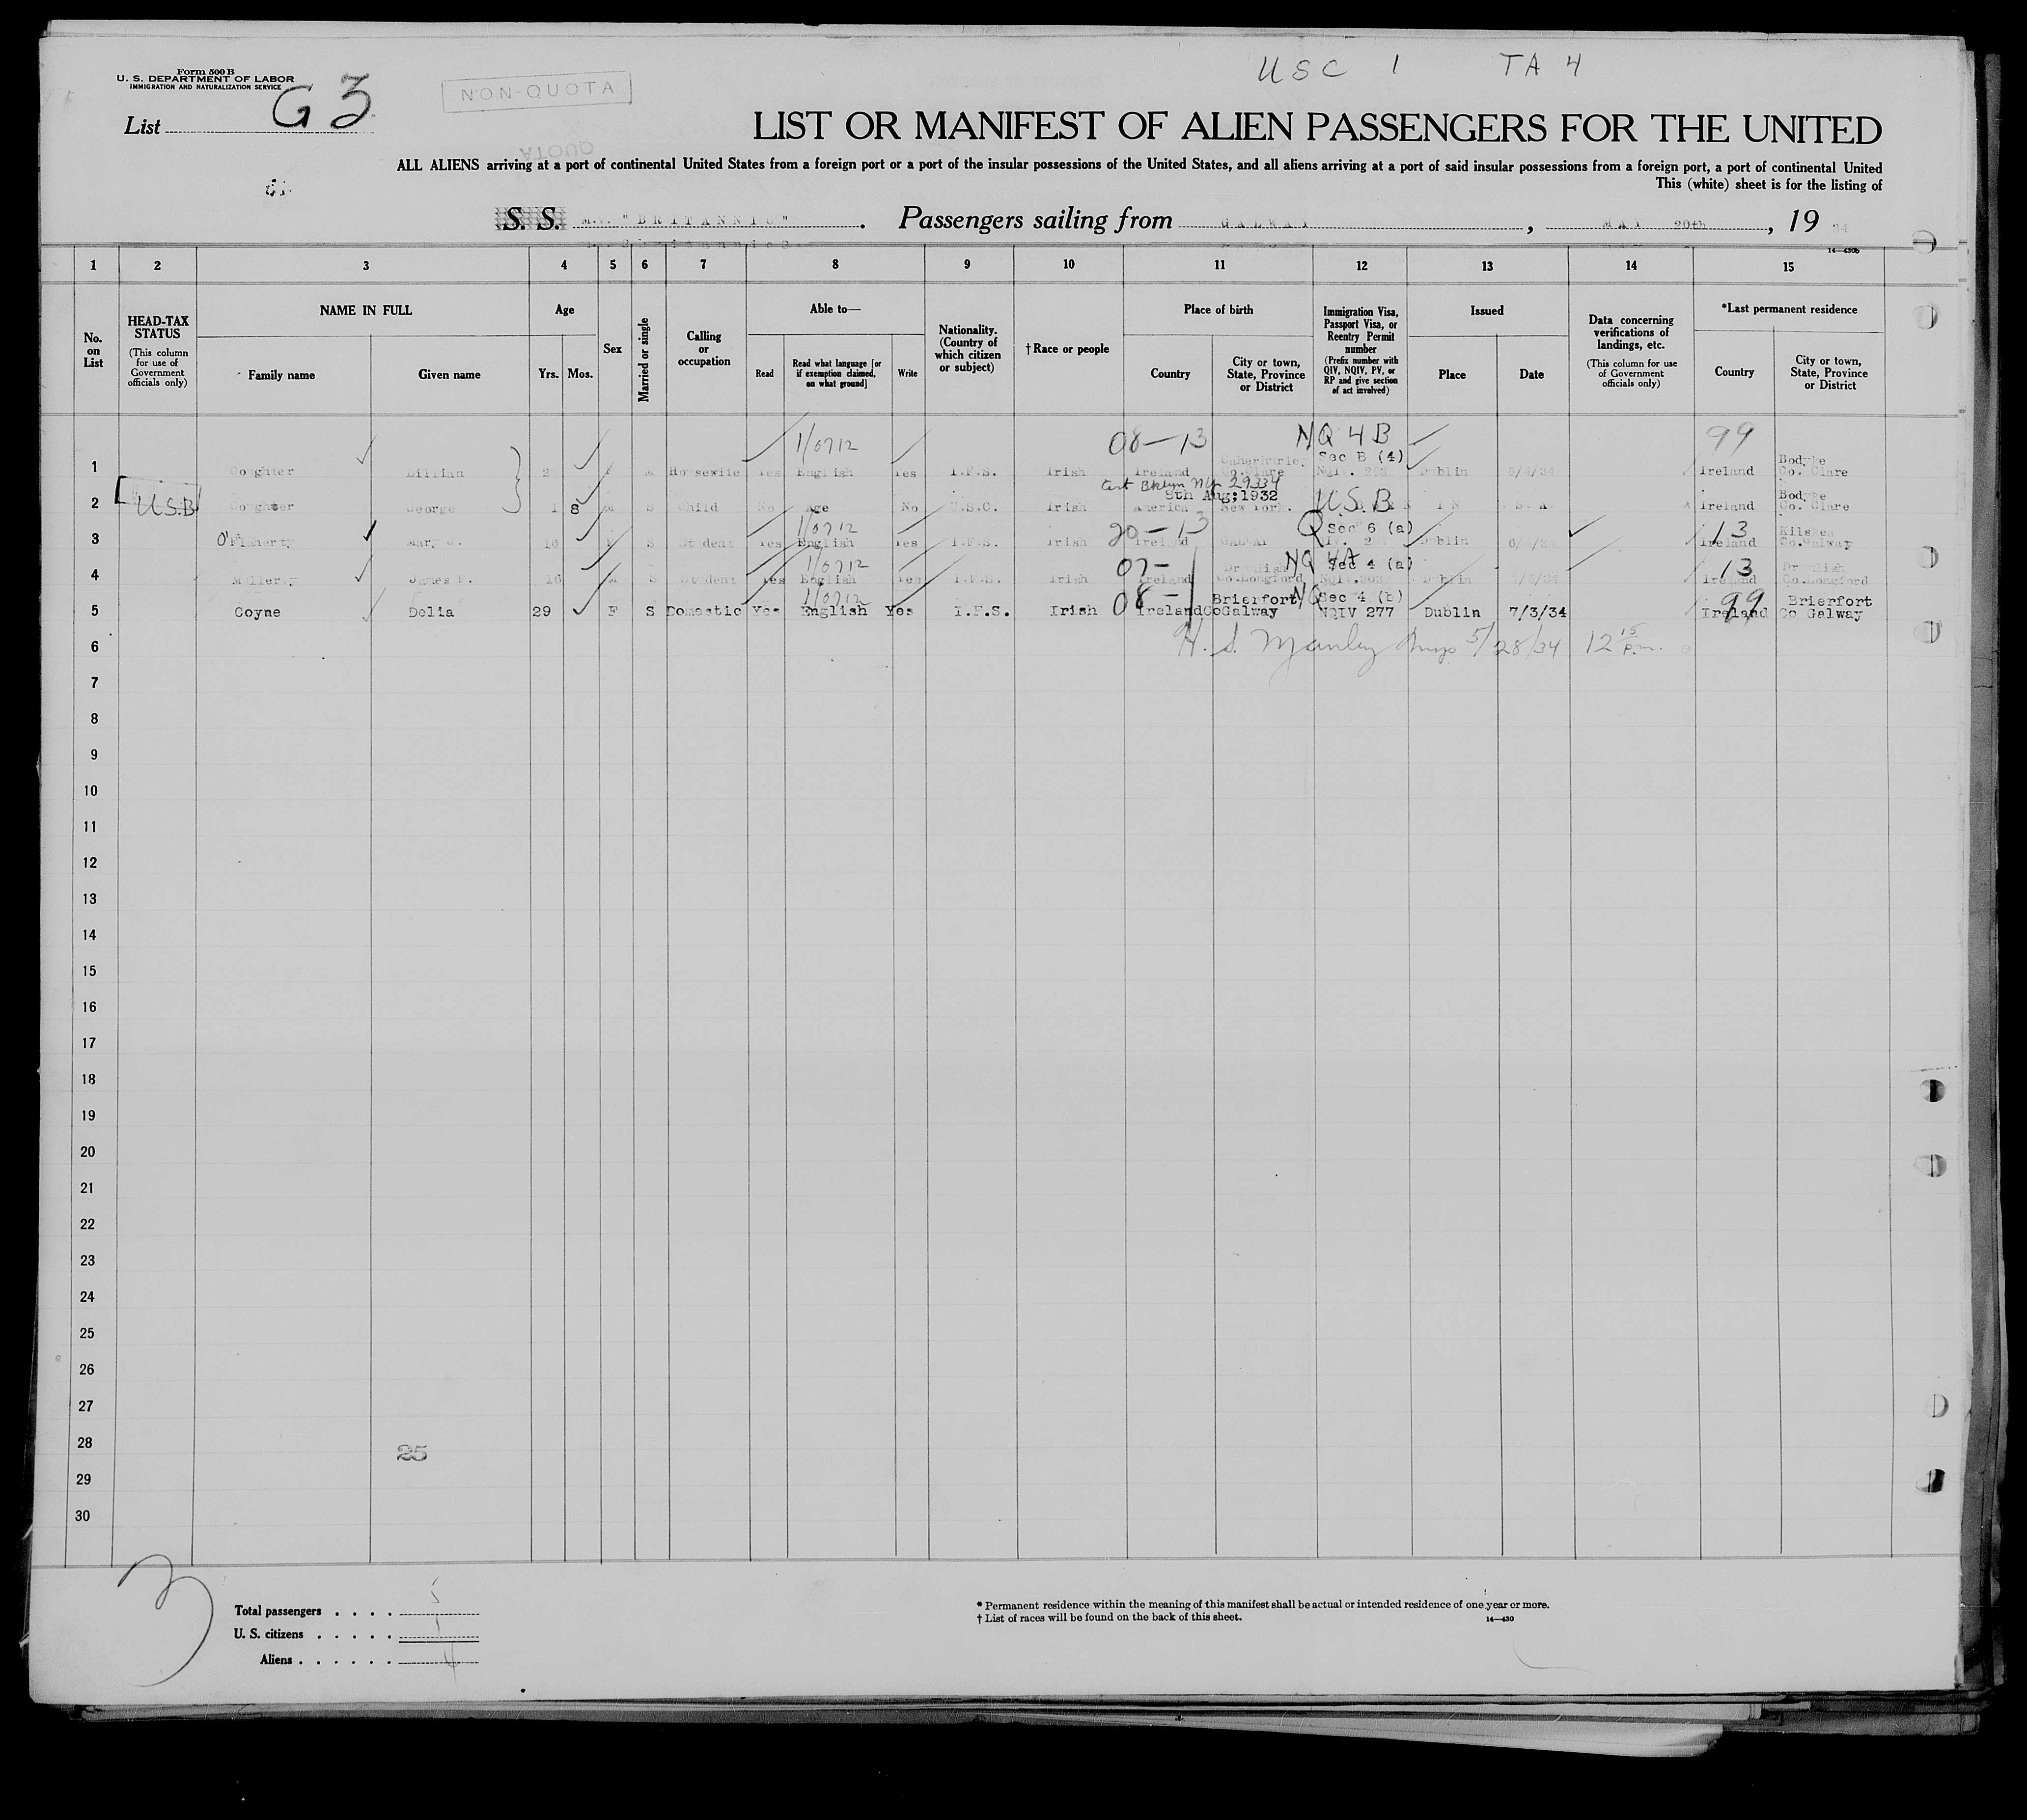 USC 1 TA 4
Form 500 B
U. S. DEPARTMENT OF LABOR
IMMIGRATION AND NATURALIZATION SERVICE
List G 3
NON-QUOTA
QUOTA
LIST OR MANIFEST OF ALIEN PASSENGERS FOR THE UNITED
ALL ALIENS arriving at a port of continental United States from a foreign port or a port of the insular possessions of the United States, and all aliens arriving at a port of said insular possessions from a foreign port, a port of continental United
This (white) sheet is for the listing of
S. S. M.V. "BRITANNIC". Passengers sailing from GALWAY, MAY 20th, 19 34
14—430b
1 2 3 4 5 6 7 8 9 10 11 12 13 14 15
No. on List
HEAD-TAX STATUS
(This column for use of Government officials only)
NAME IN FULL
Family name
Given name
Age
Yrs. Mos.
Sex
Married or single
Calling or occupation
Able to—
Read
Read what language [or if exemption claimed, on what ground]
Write
Nationality. (Country of which citizen or subject)
† Race or people
Place of birth
Country
City or town, State, Province or District
Immigration Visa, Passport Visa, or Reentry Permit number
(Prefix number with QIV, NQIV, PV, or RP and give section of act involved)
Issued
Place
Date
Data concerning verifications of landings, etc.
(This column for use of Government officials only)
*Last permanent residence
Country
City or town, State, Province or District
1/0712 08—13 NQ 4 B 99
Sec B (4) Bodyke
1 Coughter Lillian Housewife Yes English Yes I.F.S. Irish Ireland Co.Clare Dublin 5/4/34 Ireland Co. Clare
Cert Bklyn NY 29334
9th Aug;1932 USB Bodyke
2 USB Coughter George 1 8 M S Child No Age No U.S.C. Irish America New York. Ireland Co. Clare
1/0712 20—13 Q Sec 6 (a) 13
3 O'Flaherty Mary 16 F S Student Yes English Yes I.F.S. Irish Ireland GALWAY Dublin Ireland Co.Galway
1/0712 07— NQ 4A Sec 4 (a) 13
4 James 16 M S Student Yes English Yes I.F.S. Irish Ireland Co.Longford Dublin Ireland Co.Longford
1/0712 08— Brierfort NQ Sec 4 (b) 99 Brierfort
5 Coyne Delia 29 F S Domestic Yes English Yes I.F.S. Irish Ireland Co Galway NQIV 277 Dublin 7/3/34 Ireland Co Galway
6 H. S. Manley Insp 5/28/34 12 15 P.m.
7
8
9
10
11
12
13
14
15
16
17
18
19
20
21
22
23
24
25
26
27
28
25
29
30
3
Total passengers . . . . 5
U. S. citizens . . . . . 1
Aliens . . . . . . 4
* Permanent residence within the meaning of this manifest shall be actual or intended residence of one year or more.
† List of races will be found on the back of this sheet.
14—430